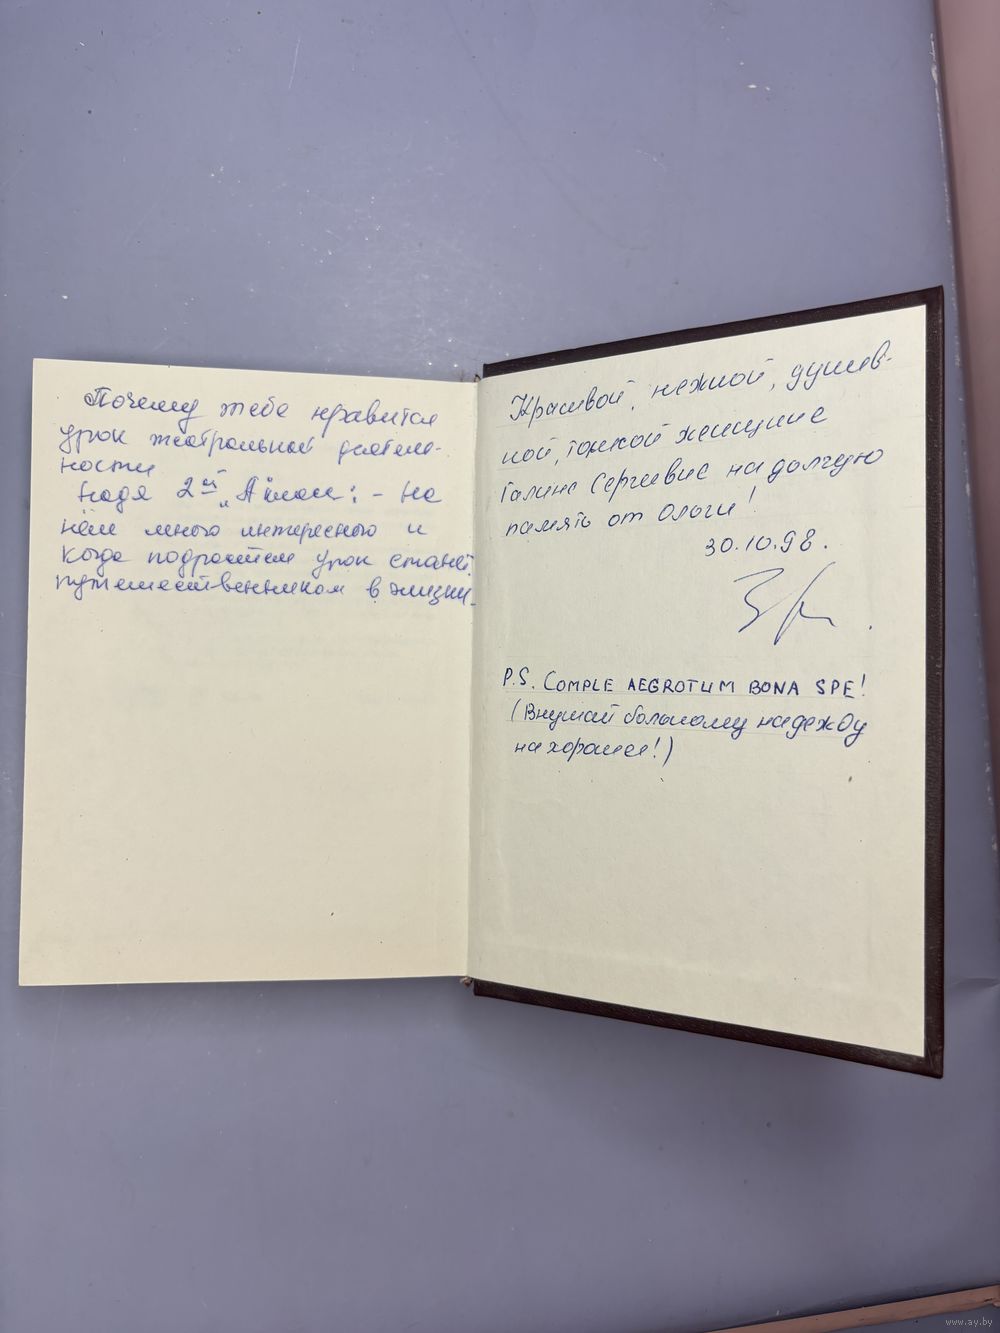 Почему тебе нравится
урок театральной деятель-
ности
Надя 2ой „А" класс: - На
нём много интересного и
когда подрастём урок станет
путешественником в жизни.
Красивой, нежной, душев-
ной, тонкой женщине
Галине Сергеевне на долгую
память от Ольги!
30.10.98.
P.S. COMPLE AEGROTUM BONA SPE!
(Внушай больному надежду
на хорошее!)
www.ay.by